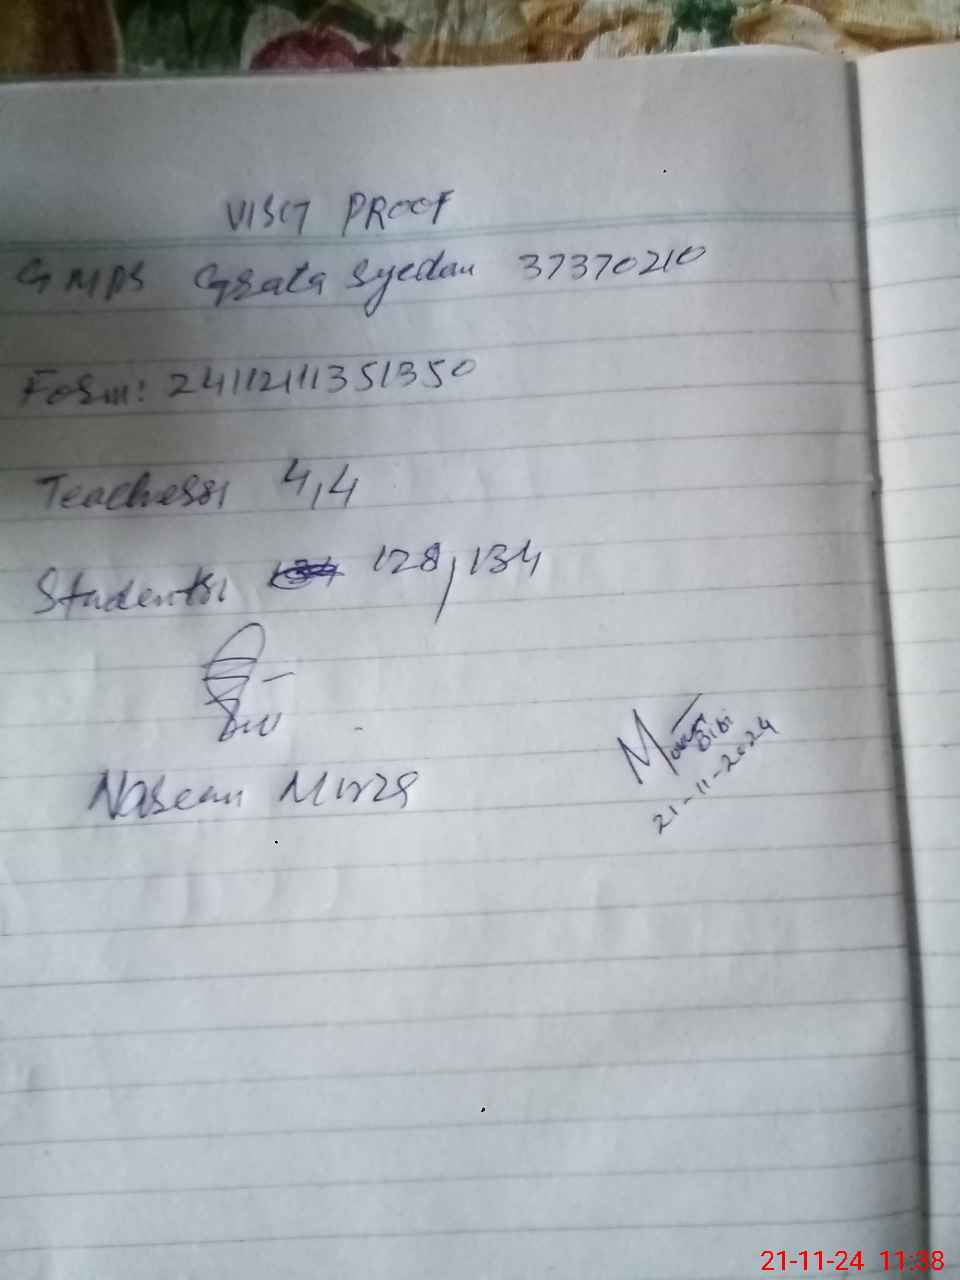 VISIT PROOF
GMPS Grata Syedan 37370210
Form: 24112111351350
Teachers: 4,4
Students: 128, 134
Naseem Mirza
Bibi
21-11-2024
21-11-24 11:38